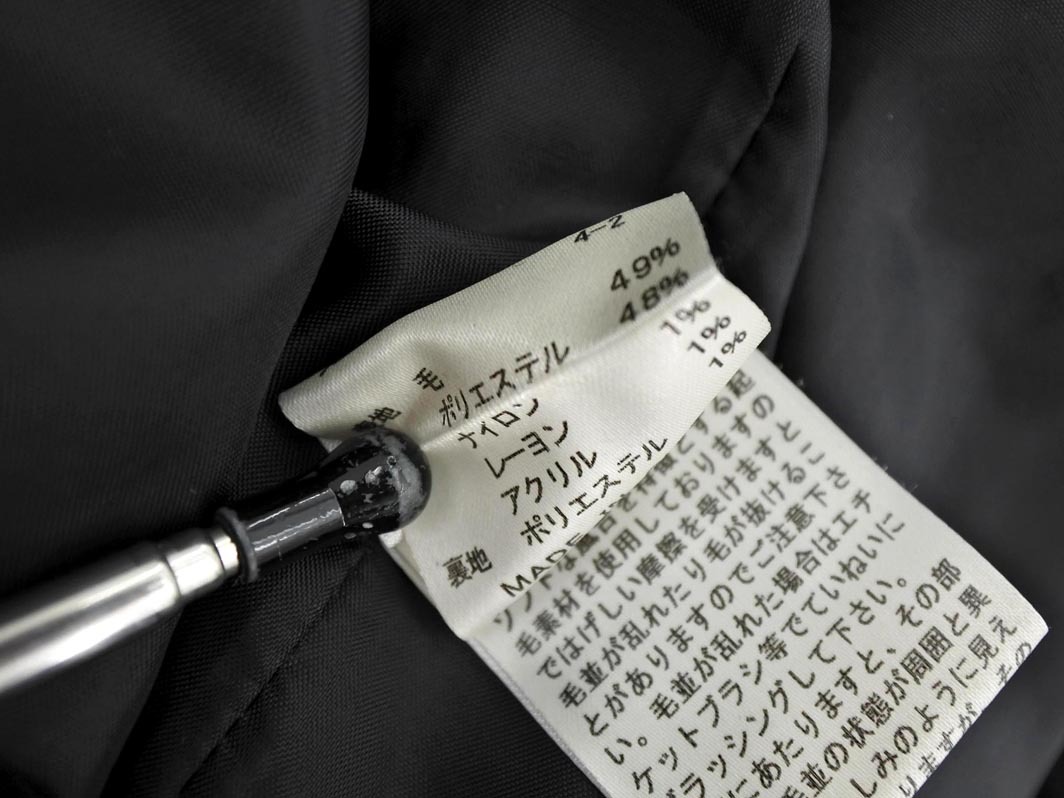 4-2
毛 49%
ポリエステル 48%
ナイロン 1%
レーヨン 1%
アクリル 1%
裏地 ポリエステル
MADE
毛素材を使用しておりますの
ではげしい摩擦を受けますと
毛並が乱れたり毛が抜けるこ
とがありますのでご注意下さ
い。毛並が乱れた場合はエチ
ケットブラシ等でていねいに
ブラッシングして下さい。
にあたりますと、その部
毛並の状態が周囲と異
しみのように見え
いますが
その